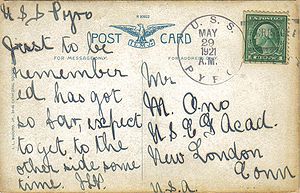 U S S Pyro
Just to be
remember
ed has got
so far, expect
to get to the
other side some
time.
R 83922
POST CARD
FOR MESSAGE ONLY
FOR ADDRESS ONLY
U. S. S.
MAY
29
1921
A.M.
PYRO
Mr
M. Ono
U S C G Acad.
New London
Conn
U.S.A.